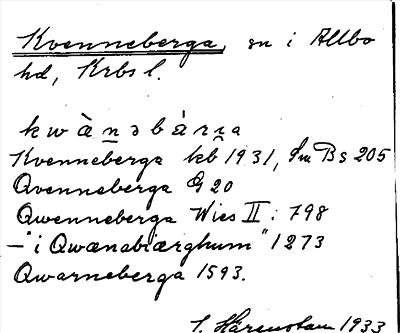 Kvenneberga, sn i Allbo
hd, Krbs l.
kwànəbárɳa
Kvenneberga kb 1931, Sm Bs 205
Qvenneberga G 20
Qwenneberga Wies II: 798
—"i Qwænabiærghum" 1273
Qwarneberga 1593.
J. Härenstam 1933